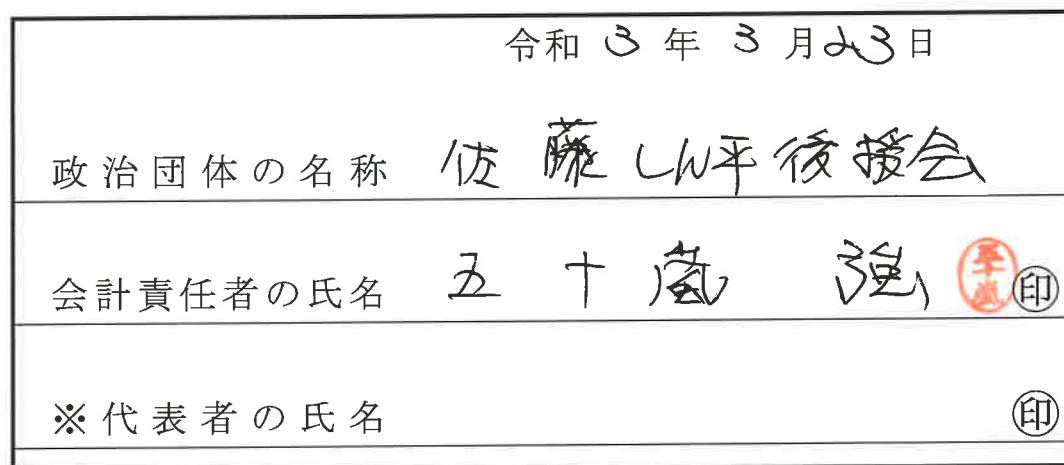 令和 3 年 3 月23日
政治団体の名称 佐藤しん平後援会
会計責任者の氏名 五十嵐 強 五十嵐 印
※代表者の氏名 印